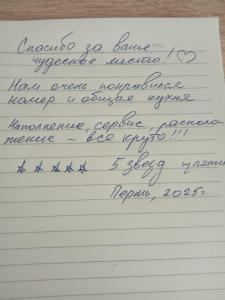 Спасибо за ваше
чудесное место! ♡
Нам очень понравился
номер и общая кухня
Наполнение, сервис, располо-
жение – все круто!!!
☆ ☆ ☆ ☆ ☆ 5 звезд
Пермь, 2025г.